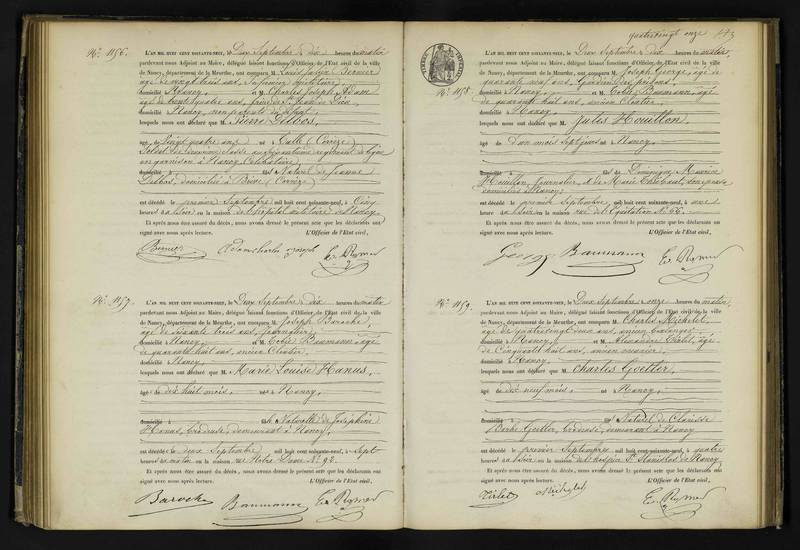 N° 1156.
L'AN MIL HUIT CENT SOIXANTE-NEUF, le Deux Septembre à dix heures du matin
pardevant nous Adjoint au Maire, délégué faisant fonctions d'Officier de l'Etat civil de la ville
de Nancy, département de la Meurthe, ont comparu M. Louis Julien Bernier
âgé de vingt six ans, infirmier militaire,
domicilié à Nancy, et M. Charles Joseph Adam
âgé de trente quatre ans, frère de St Jean de Dieu,
domicilié à Nancy, non parents du défunt,
lesquels nous ont déclaré que M. Pierre Delbos,
âgé de Vingt quatre ans né à (Corrèze)
Soldat de deuxième classe au régiment de ligne
en garnison à Nancy, Célibataire,
domicilié à fils Naturel de Jeanne
Delbos, domiciliée à Brive (Corrèze)
est décédé le premier Septembre mil huit cent soixante-neuf, à Cinq
heures du soir en la maison de l'hôpital militaire de Nancy
Et après nous être assuré du décès, nous avons dressé le présent acte que les déclarants ont
signé avec nous après lecture. L'Officier de l'Etat civil,
Bernier Adam Charles Joseph
N° 1157.
L'AN MIL HUIT CENT SOIXANTE-NEUF, le Deux Septembre à dix heures du matin
pardevant nous Adjoint au Maire, délégué faisant fonctions d'Officier de l'Etat civil de la ville
de Nancy, département de la Meurthe, ont comparu M. Joseph Baroche,
âgé de soixante trois ans, journalier,
domicilié à Nancy, et M. Tobie Baumann, âgé
de quarante huit ans, ancien Cloutier,
domicilié à Nancy,
lesquels nous ont déclaré que M. Marie Louise Hanus,
âgée de dix huit mois, née à Nancy,
domicilié à fille Naturelle de Joséphine
Hanus, brodeuse, demeurant à Nancy,
est décédée le deux Septembre mil huit cent soixante-neuf, à Sept
heures du matin en la maison rue Notre Dame N° 90.
Et après nous être assuré du décès, nous avons dressé le présent acte que les déclarants ont
signé avec nous après lecture. L'Officier de l'Etat civil,
Baroche Baumann
quatrevingt onze
N° 1158.
L'AN MIL HUIT CENT SOIXANTE-NEUF, le Deux Septembre à dix heures du matin,
pardevant nous Adjoint au Maire, délégué faisant fonctions d'Officier de l'Etat civil de la ville
de Nancy, département de la Meurthe, ont comparu M. Joseph George, âgé de
quarante neuf ans, Gardien des prisons,
domicilié à Nancy, et M. Tobie Baumann, âgé
de quarante huit ans, ancien Cloutier,
domicilié à Nancy,
lesquels nous ont déclaré que M. Jules Houillon,
âgé d'un mois sept jours né à Nancy,
domicilié à fils de Dominique Marie
Houillon, journalier, et de Marie Thiébaut, son épouse
domiciliés à Nancy;
est décédé le premier Septembre, mil huit cent soixante-neuf, à onze
heures du soir en la maison rue de l'Equitation N° 66.
Et après nous être assuré du décès, nous avons dressé le présent acte que les déclarants ont
signé avec nous après lecture. L'Officier de l'Etat civil,
George Baumann
N° 1159.
L'AN MIL HUIT CENT SOIXANTE-NEUF, le Deux Septembre à onze heures du matin,
pardevant nous Adjoint au Maire, délégué faisant fonctions d'Officier de l'Etat civil de la ville
de Nancy, département de la Meurthe, ont comparu M. Charles Michelet,
âgé de quatrevingt deux ans, ancien boulanger,
domicilié à Nancy, et M. Alexandre âgé
de Cinquante huit ans, ancien menuisier,
domicilié à Nancy,
lesquels nous ont déclaré que M. Charles Goetler,
âgé de dix neuf mois, né à Nancy,
domicilié à fils Naturel de Clarisse
Barbe Goetler, brodeuse, demeurant à Nancy
est décédé le premier Septembre mil huit cent soixante-neuf, à quatre
heures du soir en la maison de l'hospice St Stanislas de Nancy.
Et après nous être assuré du décès, nous avons dressé le présent acte que les déclarants ont
signé avec nous après lecture. L'Officier de l'Etat civil,
Michelet